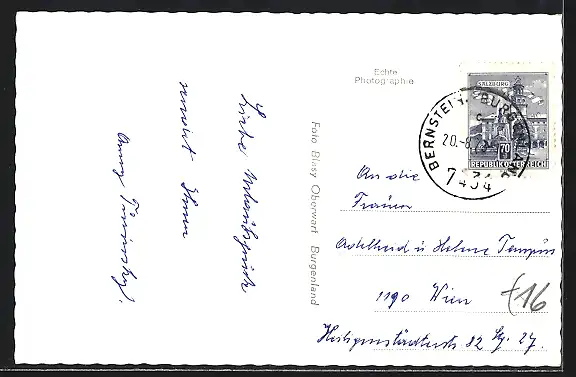 Echte
Photographie
SALZBURG
70
REPUBLIK ÖSTERREICH
BERNSTEIN, BURGENLAND
20.-8.
7434
Foto Blasy Oberwart Burgenland
Liebe Urlaubsgrüße
sendet Ihnen
An die
Frauen
Adelheid u Helene
1190 Wien
Heiligenstädterstr 82 Stg. 27
16